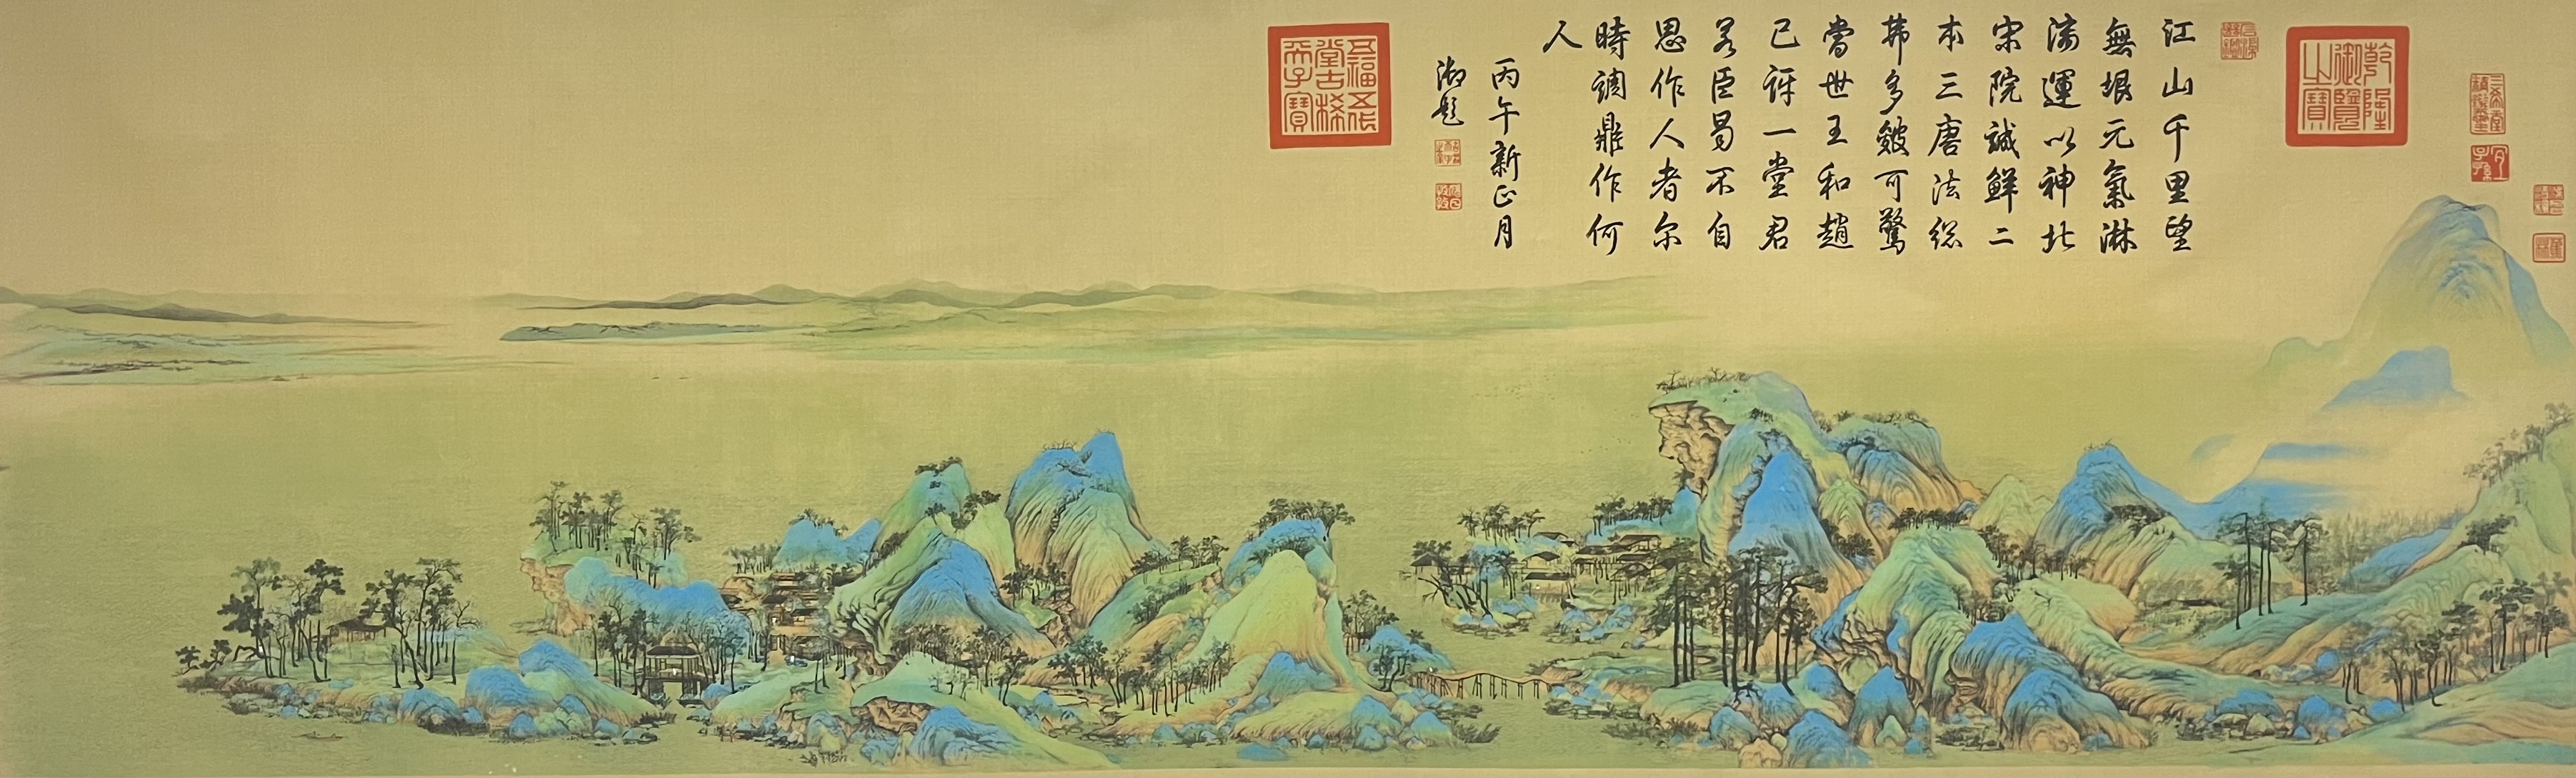 乾隆御覽之寶
江山千里望
無垠元氣淋
漓運以神北
宋院誠鮮二
本三唐法總
弗多皴可驚
當世王和趙
已訝一堂君
若臣曷不自
思作人者尔
時調鼎作何
人
丙午新正月
御題
五福五代堂古稀天子寶